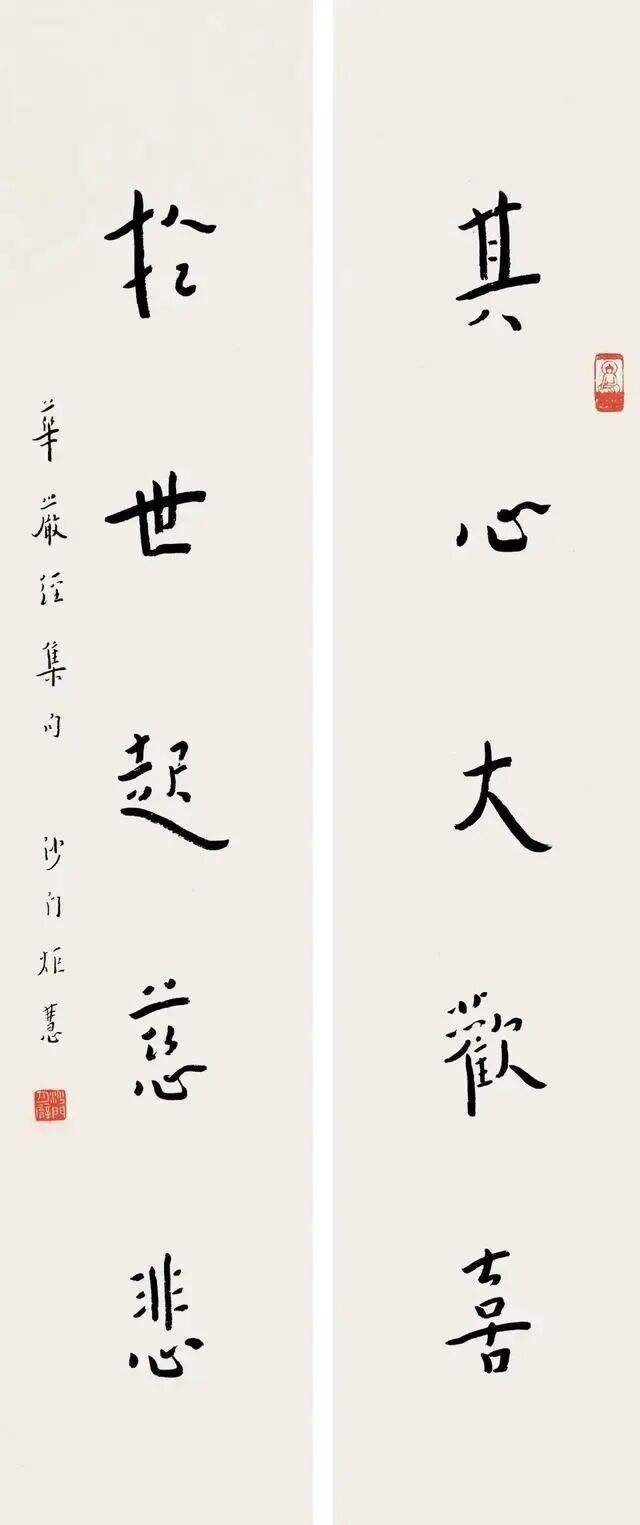 其心大歡喜
於世起慈悲
華嚴經集句 沙门炬慧